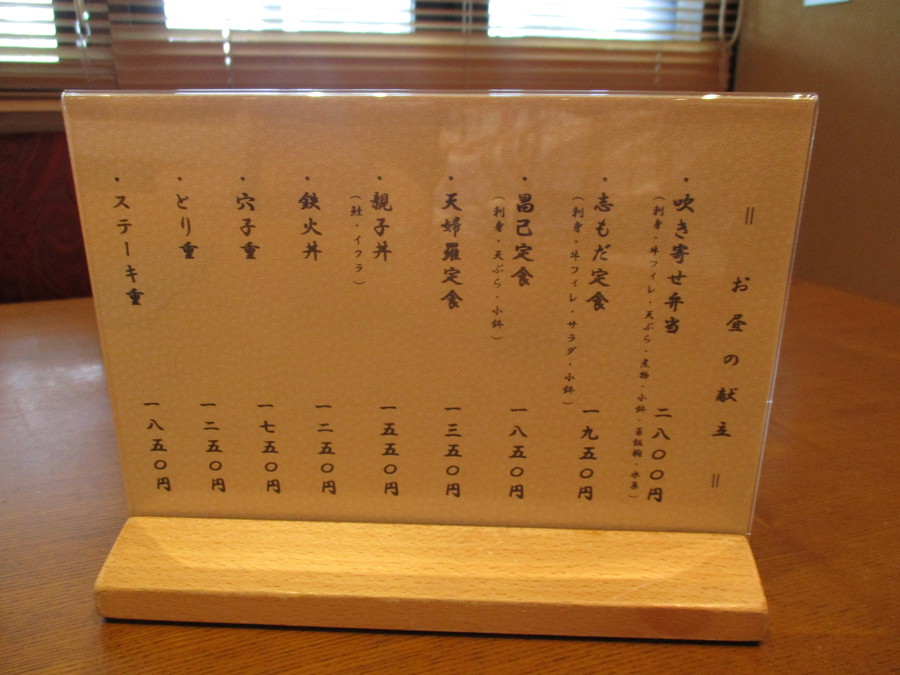 = お昼の献立 =
・吹き寄せ弁当 二八〇〇円
(刺身・牛フィレ・天ぷら・煮物・小鉢・蒸飯椀・水菓)
・志もだ定食 一九五〇円
(刺身・牛フィレ・サラダ・小鉢)
・昌己定食 一八五〇円
(刺身・天ぷら・小鉢)
・天婦羅定食 一三五〇円
・親子丼 一五五〇円
(鮭・イクラ)
・鉄火丼 一二五〇円
・穴子重 一七五〇円
・とり重 一二五〇円
・ステーキ重 一八五〇円